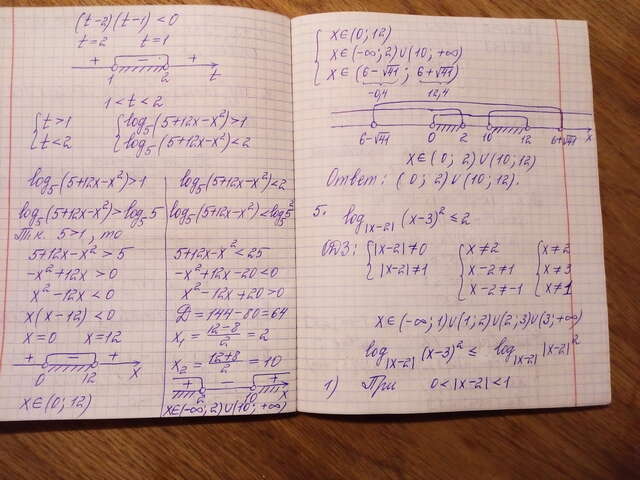 (t-2)(t-1)<0
t=2 t=1
+ - +
1 2 t
1<t<2
{t>1 {log₅(5+12x-x²)>1
{t<2 {log₅(5+12x-x²)<2
log₅(5+12x-x²)>1
log₅(5+12x-x²)>log₅5
Т.к. 5>1, то
5+12x-x²>5
-x²+12x>0
x²-12x<0
x(x-12)<0
x=0 x=12
+ - +
0 12 x
x∈(0;12)
log₅(5+12x-x²)<2
log₅(5+12x-x²)<log₅5²
5+12x-x²<25
-x²+12x-20<0
x²-12x+20>0
Д=144-80=64
x₁=(12-8)/2=2
x₂=(12+8)/2=10
+ - +
2 10 x
x∈(-∞;2)∪(10;+∞)
{x∈(0;12)
{x∈(-∞;2)∪(10;+∞)
{x∈(6-√41; 6+√41)
-0,4 12,4
6-√41 0 2 10 12 6+√41 x
x∈(0;2)∪(10;12)
Ответ: (0;2)∪(10;12).
5. log|x-2| (x-3)²≤2
ОДЗ: {|x-2|≠0 {x≠2 {x≠2
{|x-2|≠1 {x-2≠1 {x≠3
{x-2≠-1 {x≠1
x∈(-∞;1)∪(1;2)∪(2;3)∪(3;+∞)
log|x-2| (x-3)² ≤ log|x-2| |x-2|²
1) При 0<|x-2|<1